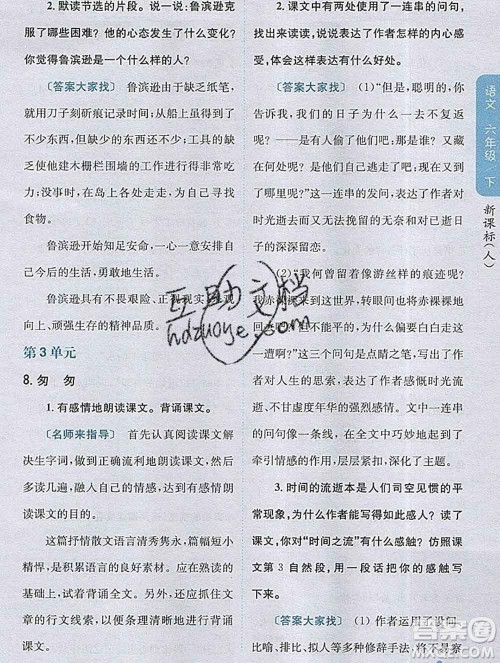 2. 默读节选的片段。说一说：鲁滨逊克
服了哪些困难？他的心态发生了什么变化？
你觉得鲁滨逊是一个什么样的人？
〔答案大家找〕 鲁滨逊由于缺乏纸笔，
就用刀子刻斫痕记录时间，从船上运下来的
不少东西，但缺少的东西还不少；没有工具
使他建木栅栏围墙的工作进行得非常吃
力；没事时，在岛上各处走走，为自己寻找
食物。
鲁滨逊开始知足安命，一心一意安排自
己今后的生活，勇敢地生活。
鲁滨逊具有不畏艰险、正视现实、乐观
向上、顽强生存的精神品质。
第 3 单元
8. 匆 匆
1. 有感情地朗读课文。背诵课文。
〔名师来指导〕 首先认真阅读课文解
决生字词，做到正确流利地朗读课文，然后
多读几遍，融入自己的情感，达到有感情朗
读课文的目的。
这篇抒情散文语言清秀隽永，篇幅短小
精悍，是积累语言的良好素材。应在熟读的
基础上，感悟文章表达的情感，还应抓住作
者的行文线索，以便条理清晰地进行背诵
课文。
2. 课文中有两处使用了一连串的问句，
找出来读读，说说表达了作者怎样的内心感
受，体会这样表达有什么好处。
〔答案大家找〕 (1)“但是，聪明的，你
告诉我，我们的日子为什么一去不复返
呢？——是有人偷了他们罢：那是谁？又藏
在何处呢？是他们自己逃走了罢：现在又到
了哪里呢？”这一连串的发问，表达了作者对
时光逝去而无法挽留的无奈和对已逝日子
的深深留恋。
(2)“我何曾留着像游丝样的痕迹呢？
我赤裸裸来到这世界，转眼间也将赤裸裸地
回去罢？但不能平的，为什么偏要白白走这
一遭啊？”这几句话是点睛之笔，写出了作者
对人生的思索，表达了作者感叹时光易
逝、不甘虚度年华的强烈感情。文中一连串
的问句像一条线，在全文中巧妙地构成了
牵引情感的链条，层层紧扣，深化了主题。
3. 时间的流逝本是人们司空见惯的平
常现象，为什么作者能写得如此感人？读了
课文，你对“时间之流”有什么感触？仿照课
文第 3 自然段，用一段话把你的感触写
下来。
〔答案大家找〕 (1) 作者运用了设问、
比喻、排比、拟人等多种修辞手法，将不易察
语文 六年级/下
新课标(人)
互助文档
hdzuoye.com
答案圈